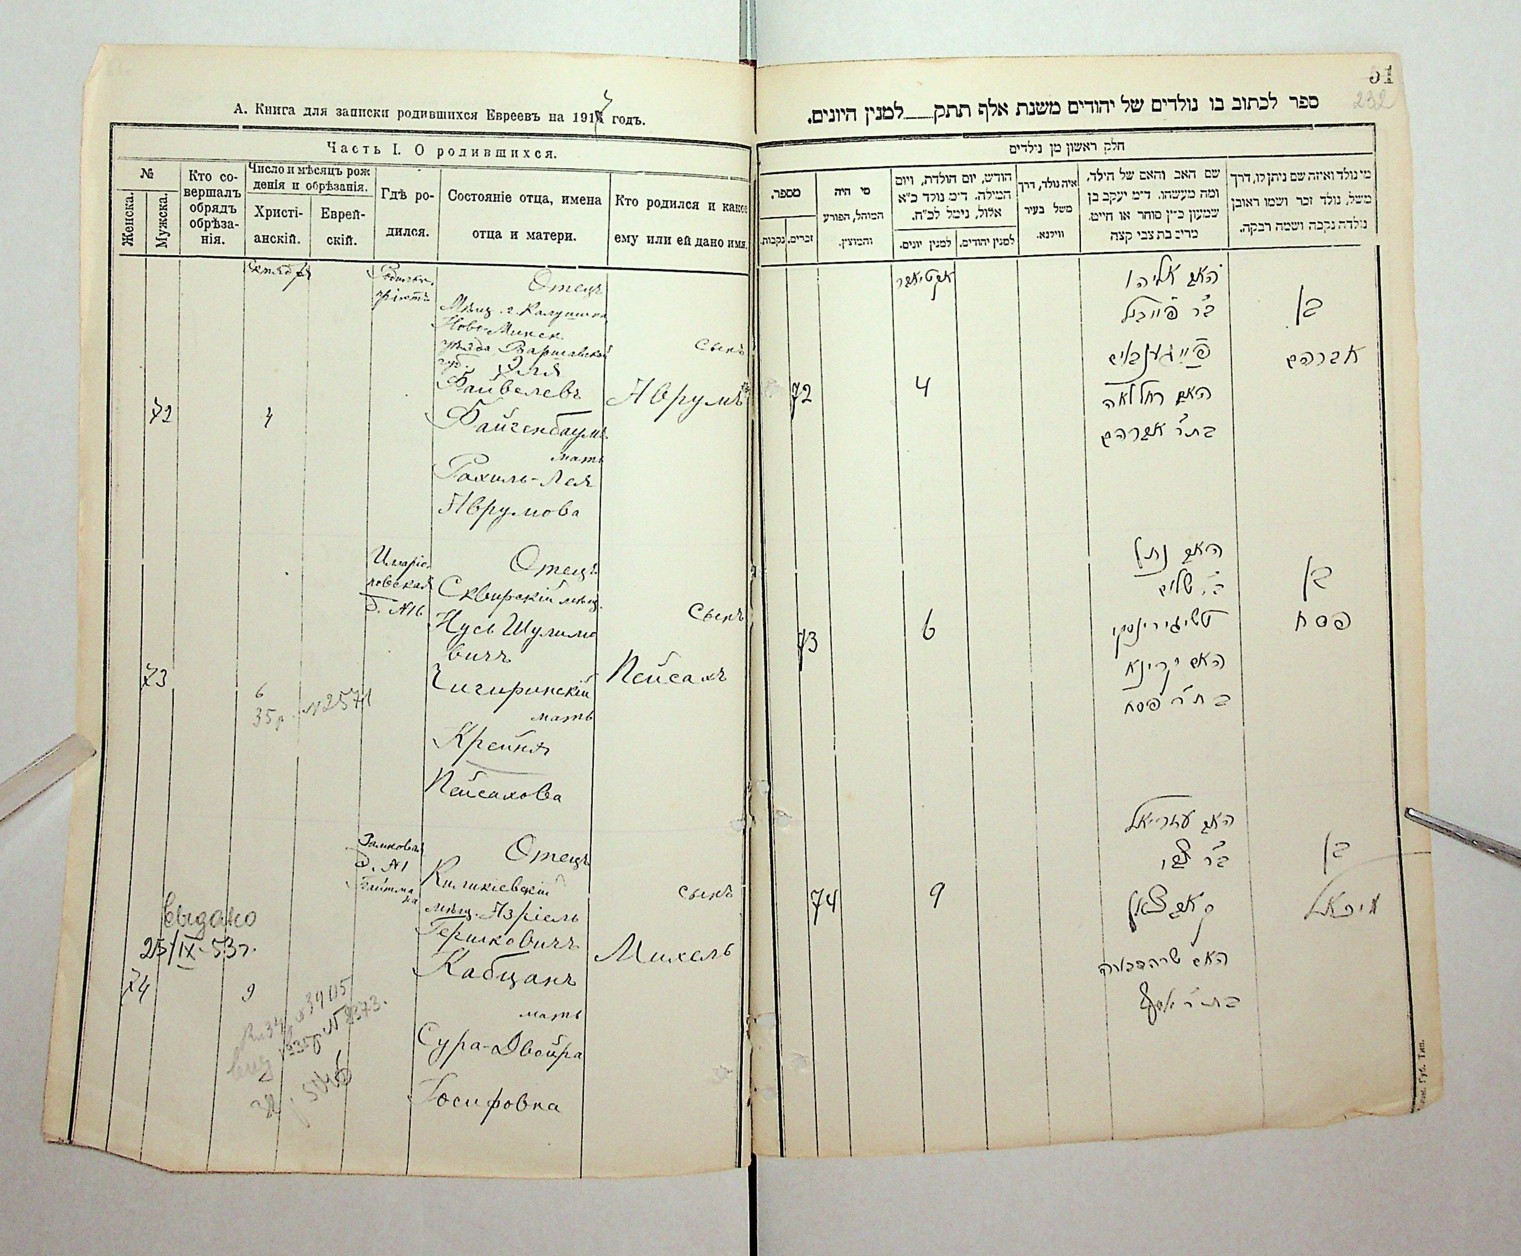 А. Книга для записки родившихся Евреевъ на 1917 годъ.
Часть I. О родившихся.
№
Женска.
Мужска.
Кто совершалъ
обрядъ
обрѣзанія.
Число и мѣсяцъ рожденія и обрѣзанія.
Христіанскій.
Еврейскій.
Гдѣ родился.
Состояніе отца, имена
отца и матери.
Кто родился и какое
ему или ей дано имя.
72
Октября
4
Отецъ
Мѣщ. г. Калушина
Ново-Минск.
уѣзда Варшавской
губ. Эля
Файвелевъ
Файгенбаумъ
мать
Рахиль-Лея
Аврумова
сынъ
Аврумъ
73
6
35р. №2571
д. №16
Отецъ
Сквирскій мѣщ.
Нусь Шулимо
вичъ
Чигиринскій
мать
Крейня
Пейсахова
сынъ
Пейсахъ
выдано
25/IX-53г.
74
9
Замковая
д. №1
Отецъ
мѣщ. Азріель
Гершковичъ
Кабцанъ
мать
Сура-Двойра
Іосифовна
сынъ
Михель
51
232
ספר לכתוב בו נולדים של יהודים משנת אלף תתק___למנין היונים.
חלק ראשון מן נולדים
מספר.
זכרים.
נקבות.
מי היה
המוהל, הפורע
והמוצץ.
חודש, יום הולדת, ויום
המילה. ד״מ נולד כ״א
אלול, נימל לכ״ח.
למנין יונים.
למנין יהודים.
איה נולד, דרך
משל בעיר
ווילנא.
שם האב והאם של הילד,
ומה מעשהו. ד״מ יעקב בן
שמעון כיין סוחר או חייט.
מרים בת צבי קצה
מי נולד ואיזה שם ניתן לו, דרך
משל, נולד זכר ושמו ראובן
נולדה נקבה ושמה רבקה.
72
אקטיאבר
4
האב אליהו
ב״ר פייביל
פייגענבוים
האם רחל לאה
בת ר׳ אברהם
בן
אברהם
73
6
האב נתן
ב״ר שלום
טשיגירינסקי
האם קריינא
בת ר׳ פסח
בן
פסח
74
9
האב עזריאל
ב״ר צבי
קאבצאן
האם שרה דבורה
בת ר׳ יוסף
בן
מיכאל